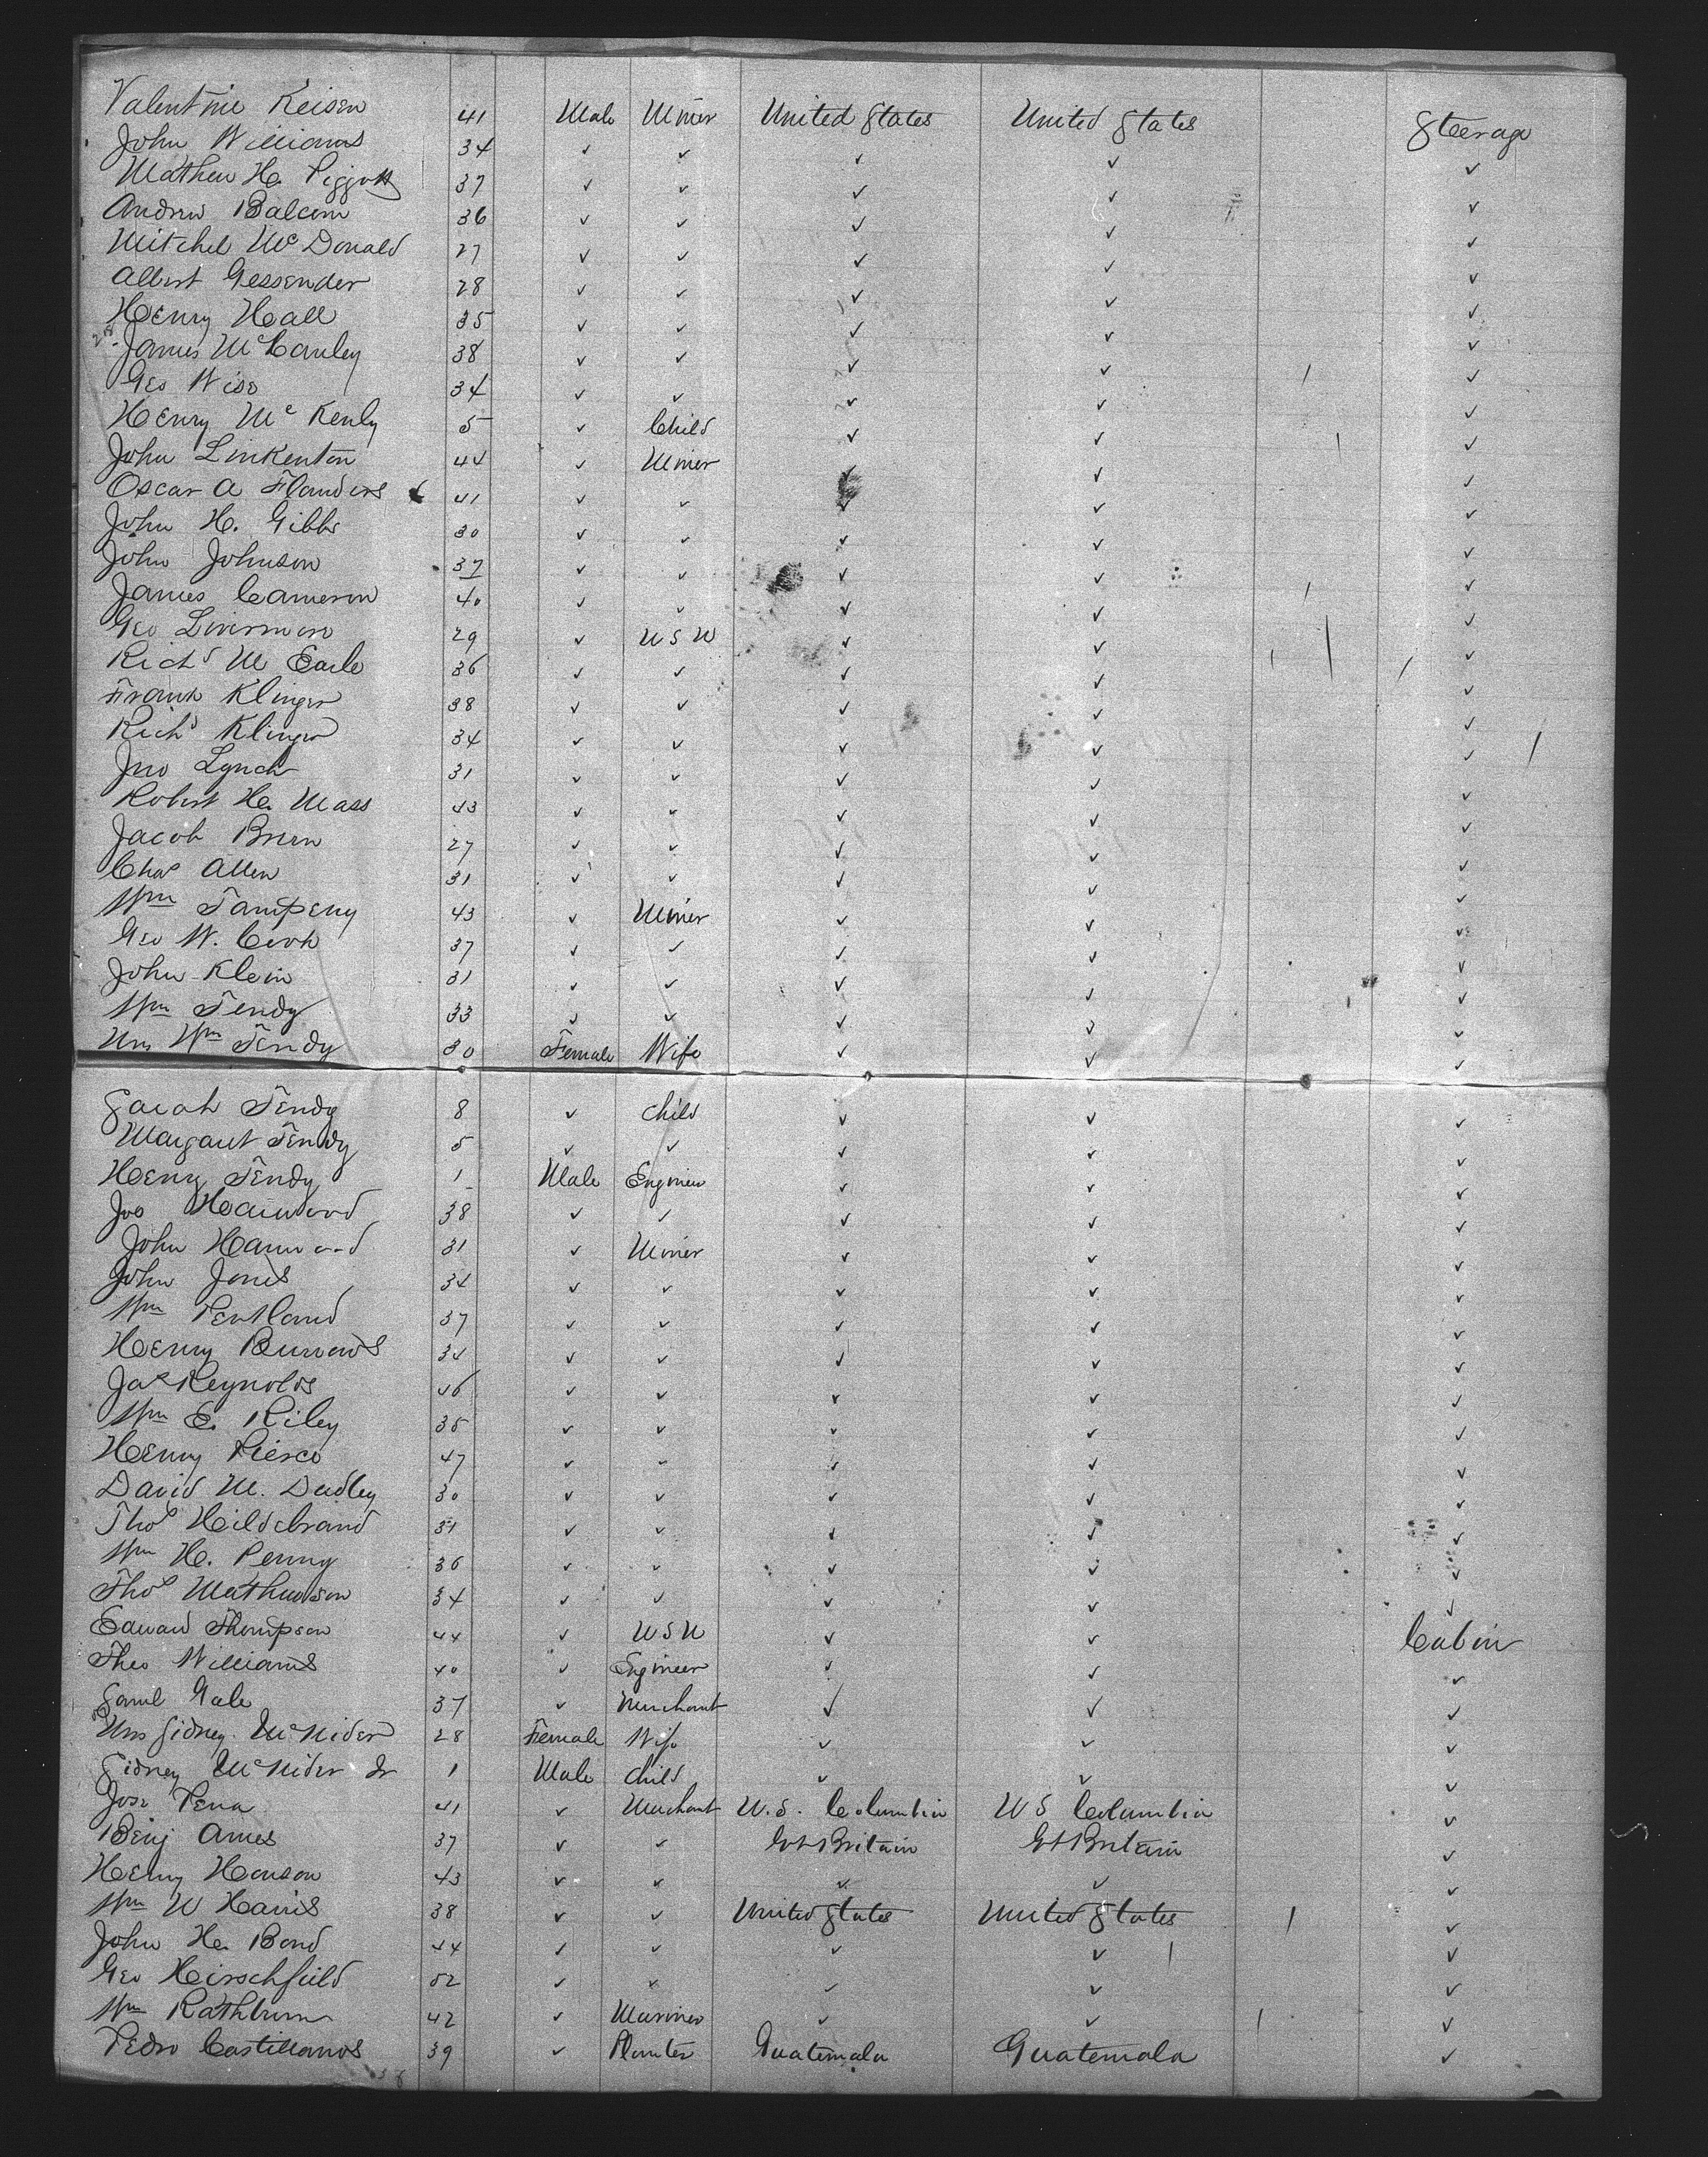 Valentine Keisen 41 Male Miner United States United States Steerage
John Williams 34 ✓ ✓ ✓ ✓ ✓
Mathew H. Piggott 37 ✓ ✓ ✓ ✓ ✓
Andrew Balcom 36 ✓ ✓ ✓ ✓ ✓
Mitchel McDonald 27 ✓ ✓ ✓ ✓ ✓
Albert Gessender 28 ✓ ✓ ✓ ✓ ✓
Henry Hall 35 ✓ ✓ ✓ ✓ ✓
James McCauley 38 ✓ ✓ ✓ ✓ ✓
Geo Wise 34 ✓ ✓ ✓ ✓ ✓
Henry Mc Kenly 5 ✓ Child ✓ ✓ ✓
John Linkenton 44 ✓ Miner ✓ ✓ ✓
Oscar A Flanders 41 ✓ ✓ ✓ ✓ ✓
John H. Gibbs 30 ✓ ✓ ✓ ✓ ✓
John Johnson 37 ✓ ✓ ✓ ✓ ✓
James Cameron 40 ✓ ✓ ✓ ✓ ✓
Geo Livermore 29 ✓ U S N ✓ ✓ ✓
Richd M Earle 36 ✓ ✓ ✓ ✓ ✓
Frank Klinger 38 ✓ ✓ ✓ ✓ ✓
Richd Klinger 34 ✓ ✓ ✓ ✓ ✓
Jno Lynch 31 ✓ ✓ ✓ ✓ ✓
Robert H. Mass 43 ✓ ✓ ✓ ✓ ✓
Jacob Bruen 27 ✓ ✓ ✓ ✓ ✓
Chas Allen 31 ✓ ✓ ✓ ✓ ✓
Wm Tampeny 43 ✓ Miner ✓ ✓ ✓
Geo W. Cook 37 ✓ ✓ ✓ ✓ ✓
John Klein 31 ✓ ✓ ✓ ✓ ✓
Wm Tendy 33 ✓ ✓ ✓ ✓ ✓
Mrs Wm Tendy 30 Female Wife ✓ ✓ ✓
Sarah Tendy 8 ✓ Child ✓ ✓ ✓
Margaret Tendy 5 ✓ ✓ ✓ ✓ ✓
Henry Tendy 1 Male Engineer ✓ ✓ ✓
Jos 38 ✓ ✓ ✓ ✓ ✓
John 31 ✓ Miner ✓ ✓ ✓
John Jones 34 ✓ ✓ ✓ ✓ ✓
Wm Pentland 37 ✓ ✓ ✓ ✓ ✓
Henry Burrows 34 ✓ ✓ ✓ ✓ ✓
Jas Reynolds 46 ✓ ✓ ✓ ✓ ✓
Wm E. Riley 35 ✓ ✓ ✓ ✓ ✓
Henry Pierce 47 ✓ ✓ ✓ ✓ ✓
David M. Dudley 30 ✓ ✓ ✓ ✓ ✓
Thos Hildebrand 31 ✓ ✓ ✓ ✓ ✓
Wm H. Penny 36 ✓ ✓ ✓ ✓ ✓
Thos Mathewson 34 ✓ ✓ ✓ ✓ ✓
Edward Thompson 44 ✓ U S N ✓ ✓ Cabin
Theo Williams 40 ✓ Engineer ✓ ✓ ✓
Saml Gale 37 ✓ Merchant ✓ ✓ ✓
Mrs Sidney McNider 28 Female Wife ✓ ✓ ✓
Sidney McNider Jr 1 Male Child ✓ ✓ ✓
Jose Pena 41 ✓ Merchant U.S. Columbia U S Columbia ✓
Benj Ames 37 ✓ ✓ Gt Britain Gt Britain ✓
Henry Henson 43 ✓ ✓ ✓ ✓ ✓
Wm W Harris 38 ✓ ✓ United States United States ✓
John H. Bond 44 ✓ ✓ ✓ ✓ ✓
Geo Hirschfield 52 ✓ ✓ ✓ ✓ ✓
Wm Rathburn 42 ✓ Mariner ✓ ✓ ✓
Pedro Castillanos 39 ✓ Planter Guatemala Guatemala ✓